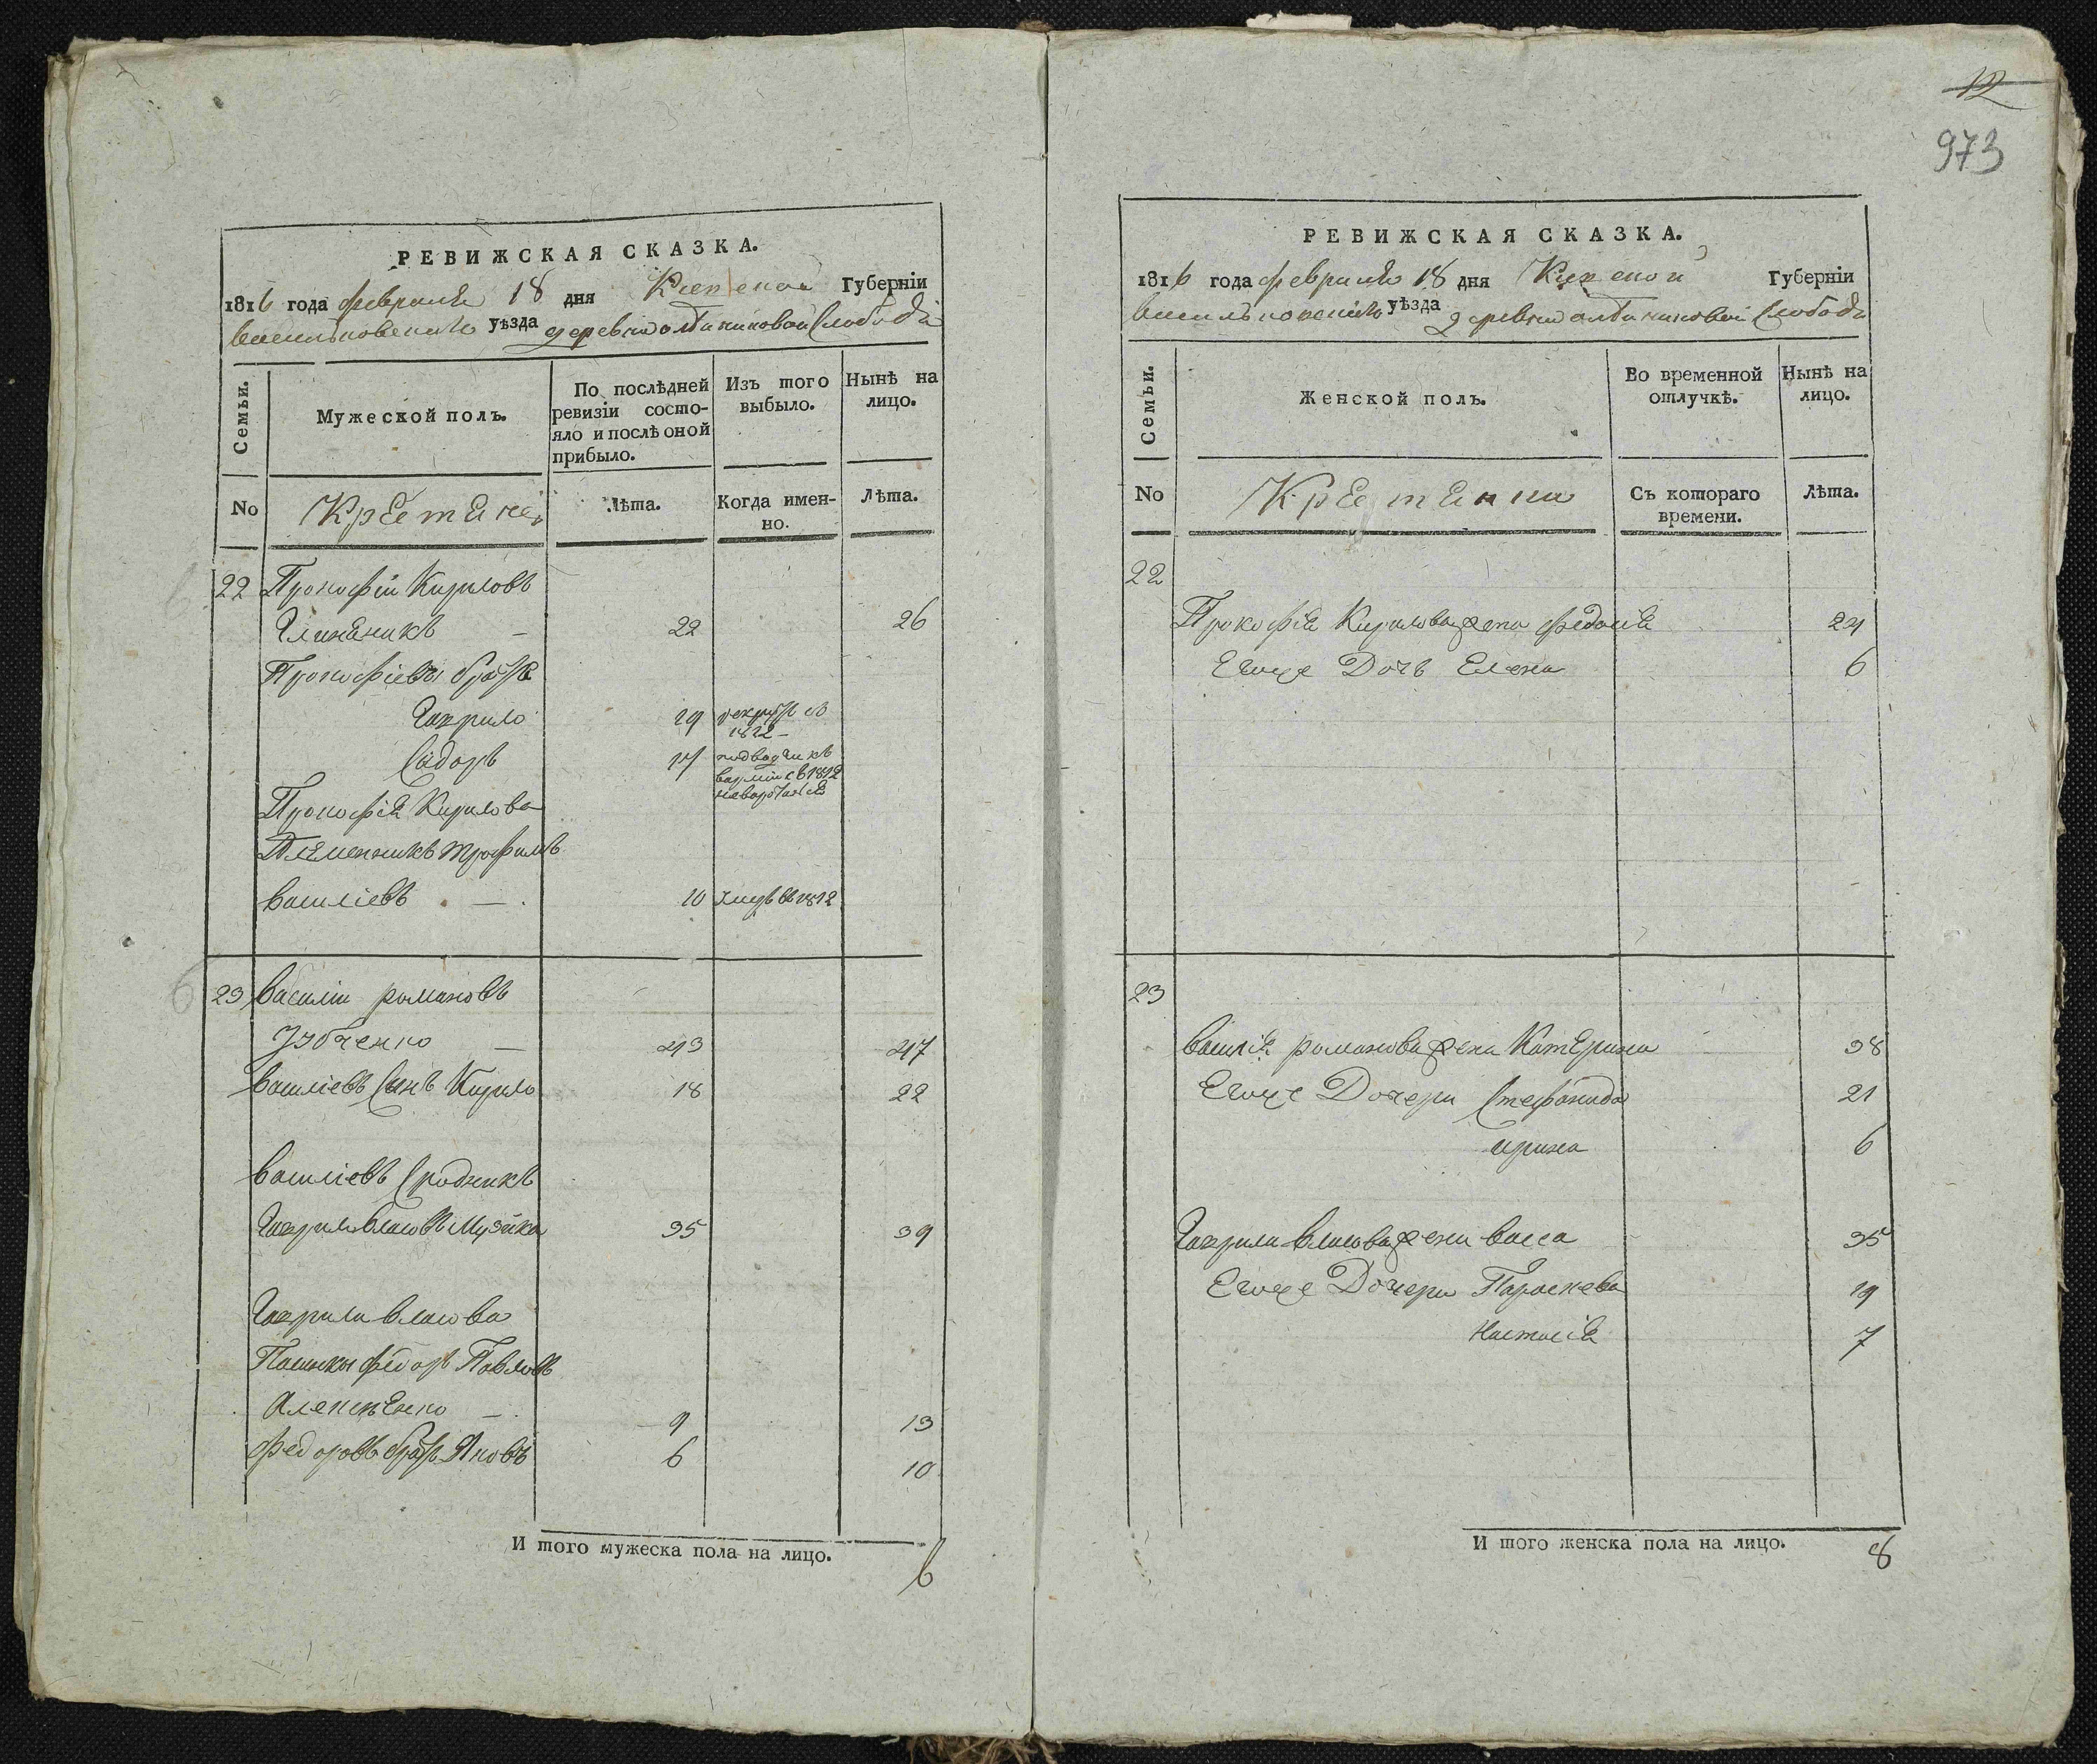 РЕВИЖСКАЯ СКАЗКА.
1816 года февраля 18 дня Киевской Губерніи
васильковскаго уѣзда деревни Слободы
Семьи.
Мужеской полъ.
По послѣдней ревизіи состо-
яло и послѣ оной
прибыло.
Изъ того
выбыло.
Нынѣ на
лицо.
No
Крестяне
Лѣта.
Когда имен-
но.
Лѣта.
22 Прокофій Кириловъ
22 26
Прокофіевы братя
Гаврило 19 рекрутъ въ
1812
Сидоръ 14 подводчикъ
в 1812
Прокофія Кирилова
Племенникъ трофимъ
василіевъ 10 въ 1812
23 василій романовъ
Зубченко 43 47
василіевъ Сынъ Кирило 18 22
василіевъ Сродникъ
Гаврило власовъ Музика 35 39
Гаврила власова
Пасынки федоръ Павловъ
9 13
федоровъ братъ Яковъ 6 10
И того мужеска пола на лицо. 6
12
973
РЕВИЖСКАЯ СКАЗКА.
1816 года февраля 18 дня Киевской Губерніи
васильковскаго уѣзда деревни Слободы
Семьи.
Женской полъ.
Во временной
отлучкѣ.
Нынѣ на
лицо.
No
Крестянки
Съ котораго
времени.
Лѣта.
22
Прокофія Кирилова жена федосія 24
Егоже Дочь Елена 6
23
василія романова жена Катерина 38
Егоже Дочери Стефанида 21
ирина 6
Гаврила власова жена васса 35
Егоже Дочери Параскева 19
Настасія 7
И того женска пола на лицо. 8